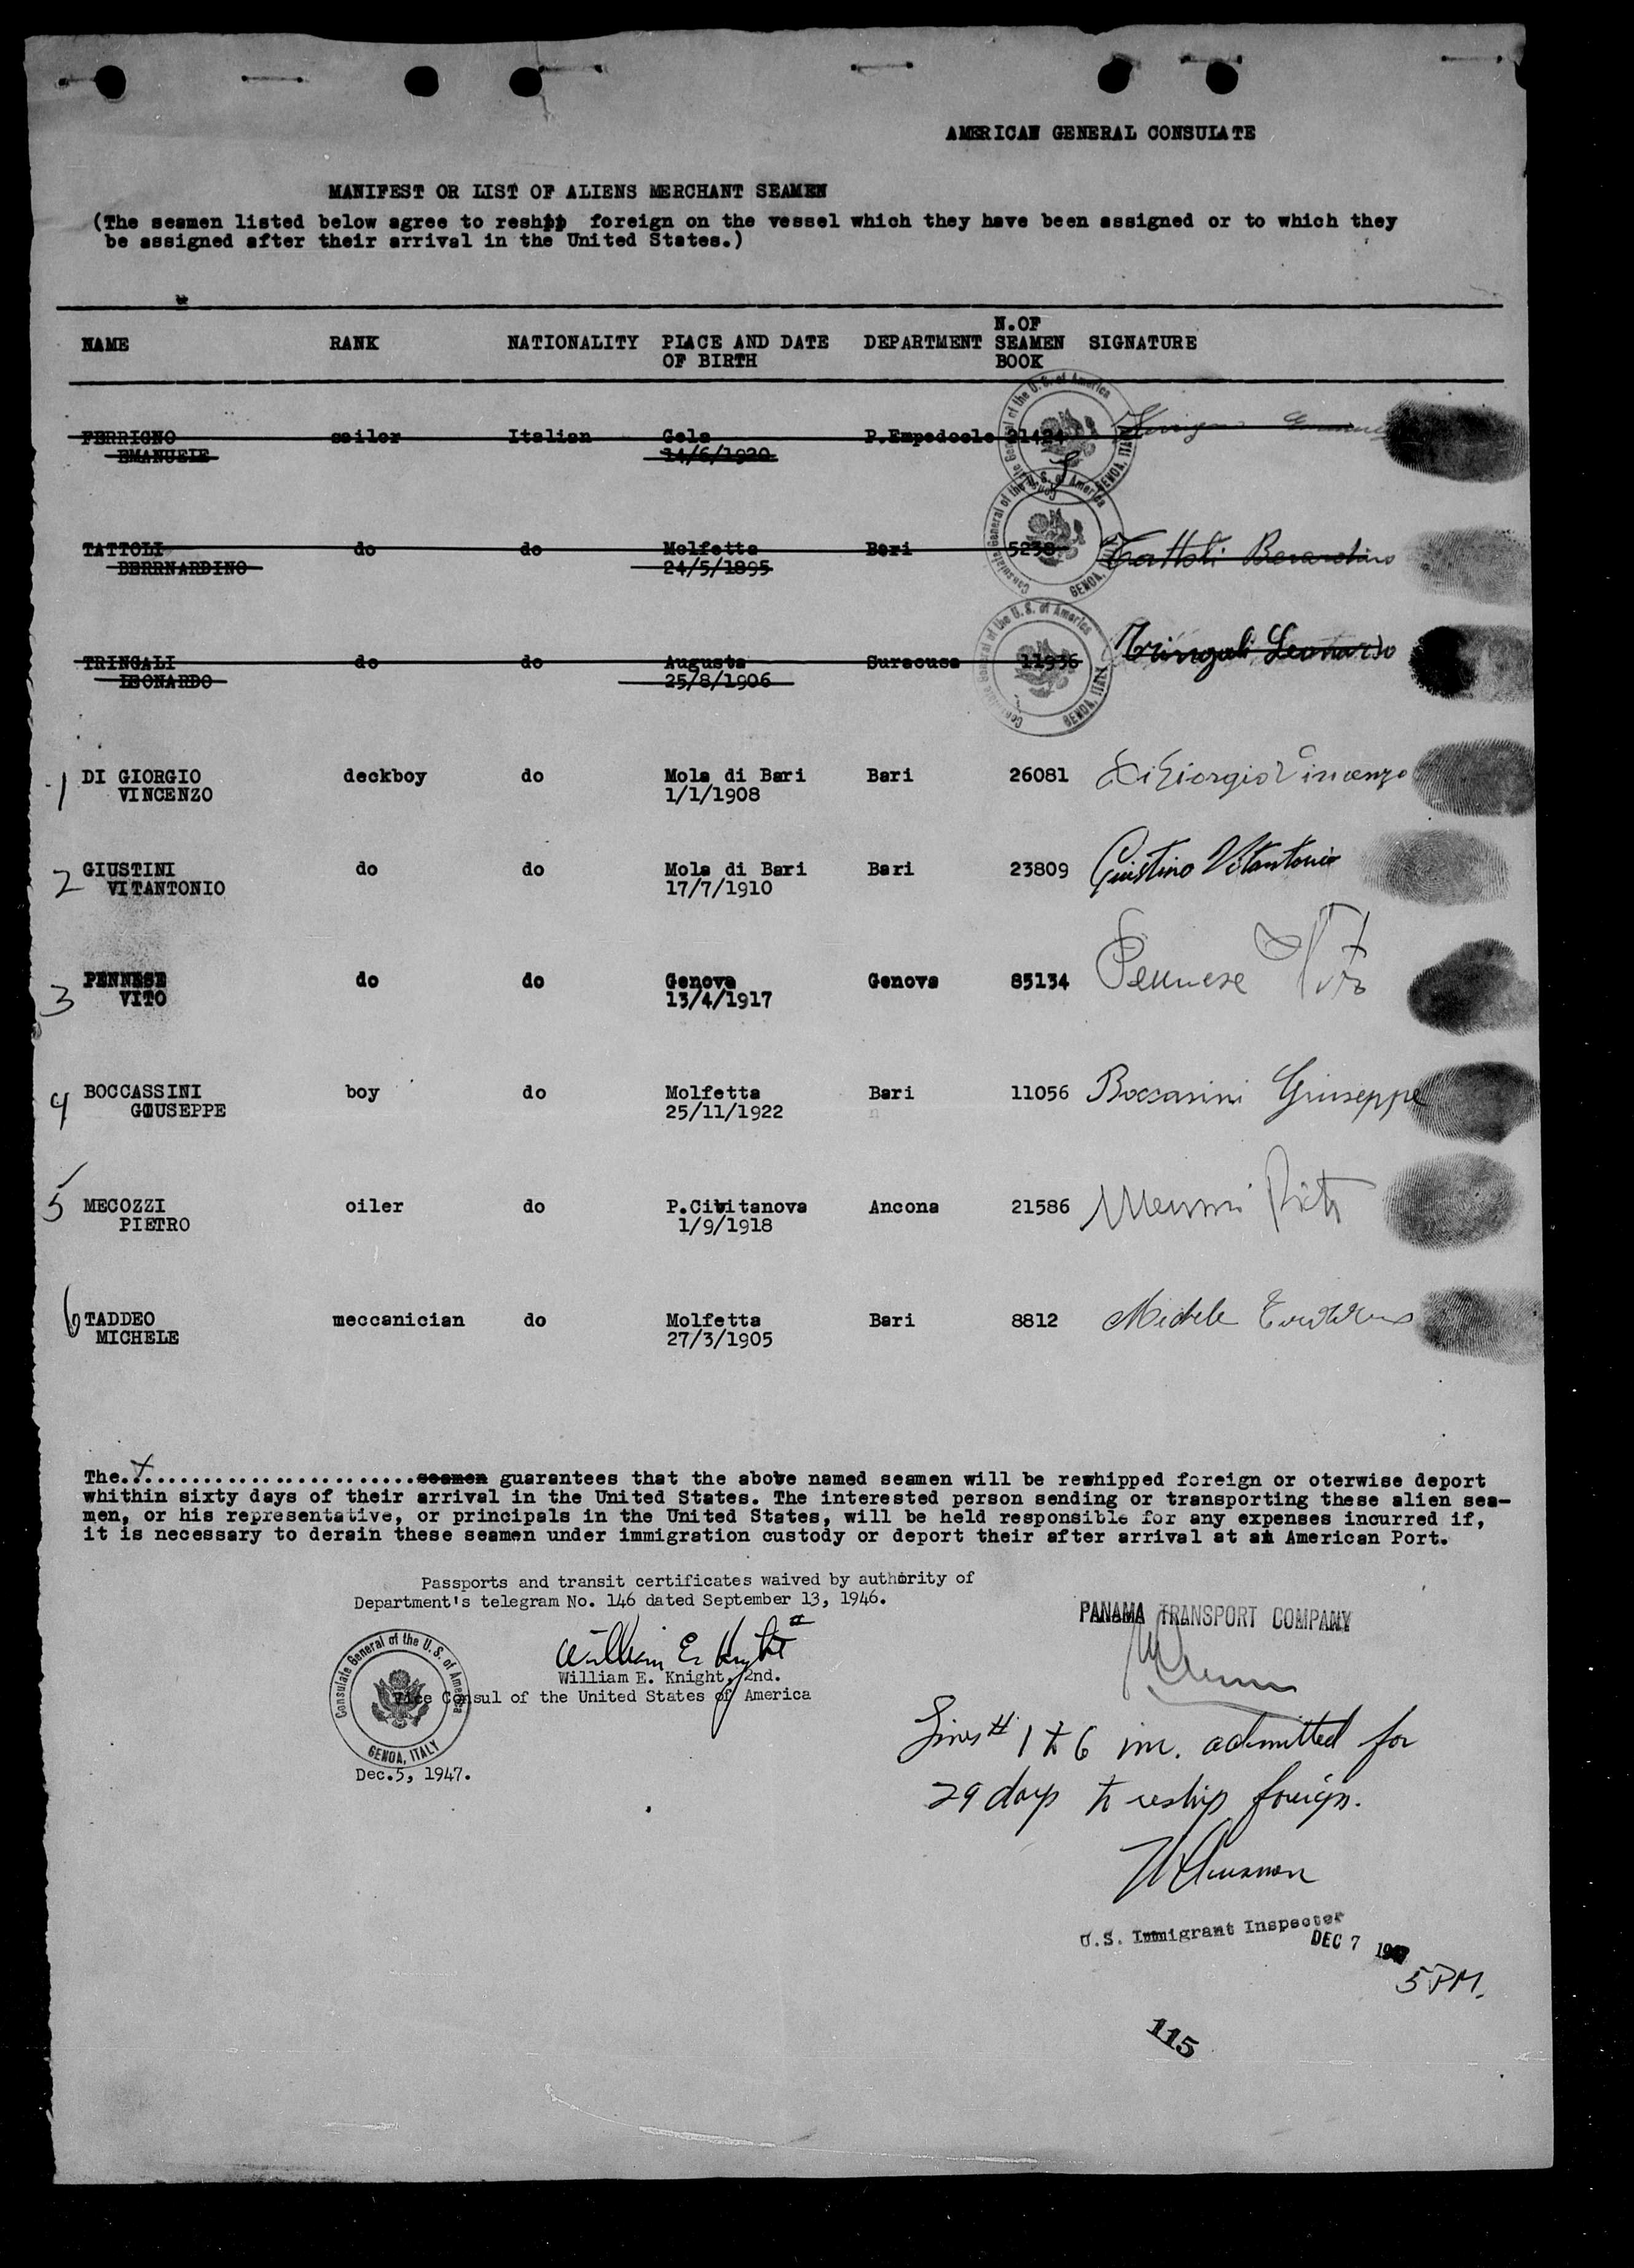 AMERICAN GENERAL CONSULATE
MANIFEST OR LIST OF ALIENS MERCHANT SEAMEN
(The seamen listed below agree to reship foreign on the vessel which they have been assigned or to which they
be assigned after their arrival in the United States.)
NAME RANK NATIONALITY PLACE AND DATE OF BIRTH DEPARTMENT N.OF SEAMEN BOOK SIGNATURE
FERRIGNO sailor Italian Gela P.Empedocle 21424
EMANUELE 14/6/1920
TATTOLI do do Molfetta Bari 5238 Tattoli Berardino
BERRNARDINO 24/5/1895
TRINGALI do do Augusta Suracusa 11936 Tringali Leonardo
LEONARDO 25/8/1906
1 DI GIORGIO deckboy do Mola di Bari Bari 26081 Di Giorgio Vincenzo
VINCENZO 1/1/1908
2 GIUSTINI do do Mola di Bari Bari 23809 Giustino Vitantonio
VITANTONIO 17/7/1910
3 PENNESE do do Genova Genova 85134 Pennese Vito
VITO 13/4/1917
4 BOCCASSINI boy do Molfetta Bari 11056 Boccasini Giuseppe
GIUSEPPE 25/11/1922
5 MECOZZI oiler do P.Civitanova Ancona 21586
PIETRO 1/9/1918
6 TADDEO meccanician do Molfetta Bari 8812 Michele
MICHELE 27/3/1905
The........................seamen guarantees that the above named seamen will be reshipped foreign or oterwise deport
whithin sixty days of their arrival in the United States. The interested person sending or transporting these alien sea-
men, or his representative, or principals in the United States, will be held responsible for any expenses incurred if,
it is necessary to derain these seamen under immigration custody or deport their after arrival at an American Port.
Passports and transit certificates waived by authority of
Department's telegram No. 146 dated September 13, 1946.
PANAMA TRANSPORT COMPANY
William E. Knight II
William E. Knight, 2nd.
Vice Consul of the United States of America
Consulate General of the U. S. of America
GENOA, ITALY
Dec.5, 1947.
Lines # 1 to 6 inc. admitted for
29 days to reship foreign.
U.S. Immigrant Inspector
DEC 7 1947
5 PM.
115